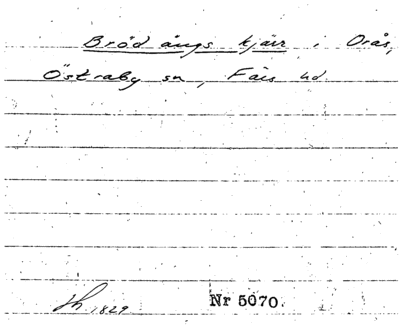 Bröd ängs kjärr i Orås,
Östraby sn, Färs hd.
1829 Nr 5070.